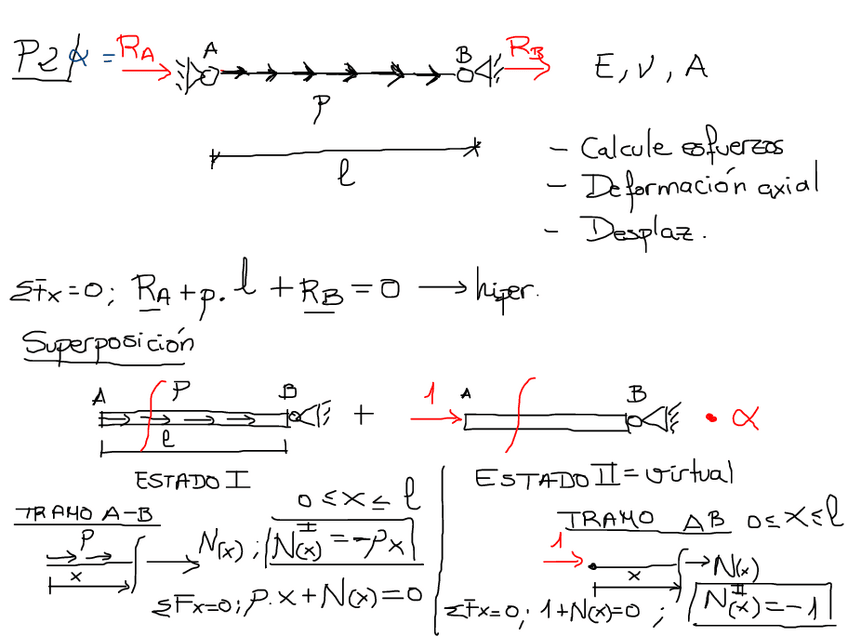 P2/ α = R_A A B R_B E, ν, A
p
l
- Calcule esfuerzos
- Deformación axial
- Desplaz.
ΣFx=0; R_A + p. l + R_B = 0 → hiper.
Superposición
A p B + 1 A B • α
l
ESTADO I
ESTADO II = virtual
0 ≤ x ≤ l
TRAMO A-B
p
x
→ N(x); N^I(x) = -px
ΣFx=0; p.x + N(x) = 0
TRAMO AB 0 ≤ x ≤ l
1
x
→ N(x)
ΣFx=0; 1+N(x)=0; N^II(x) = -1